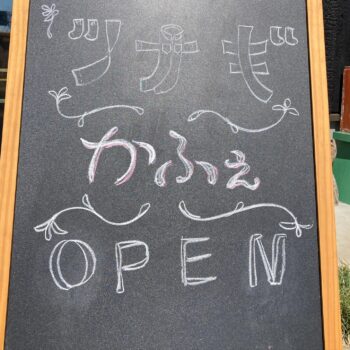 ツナギ
かふぇ
OPEN